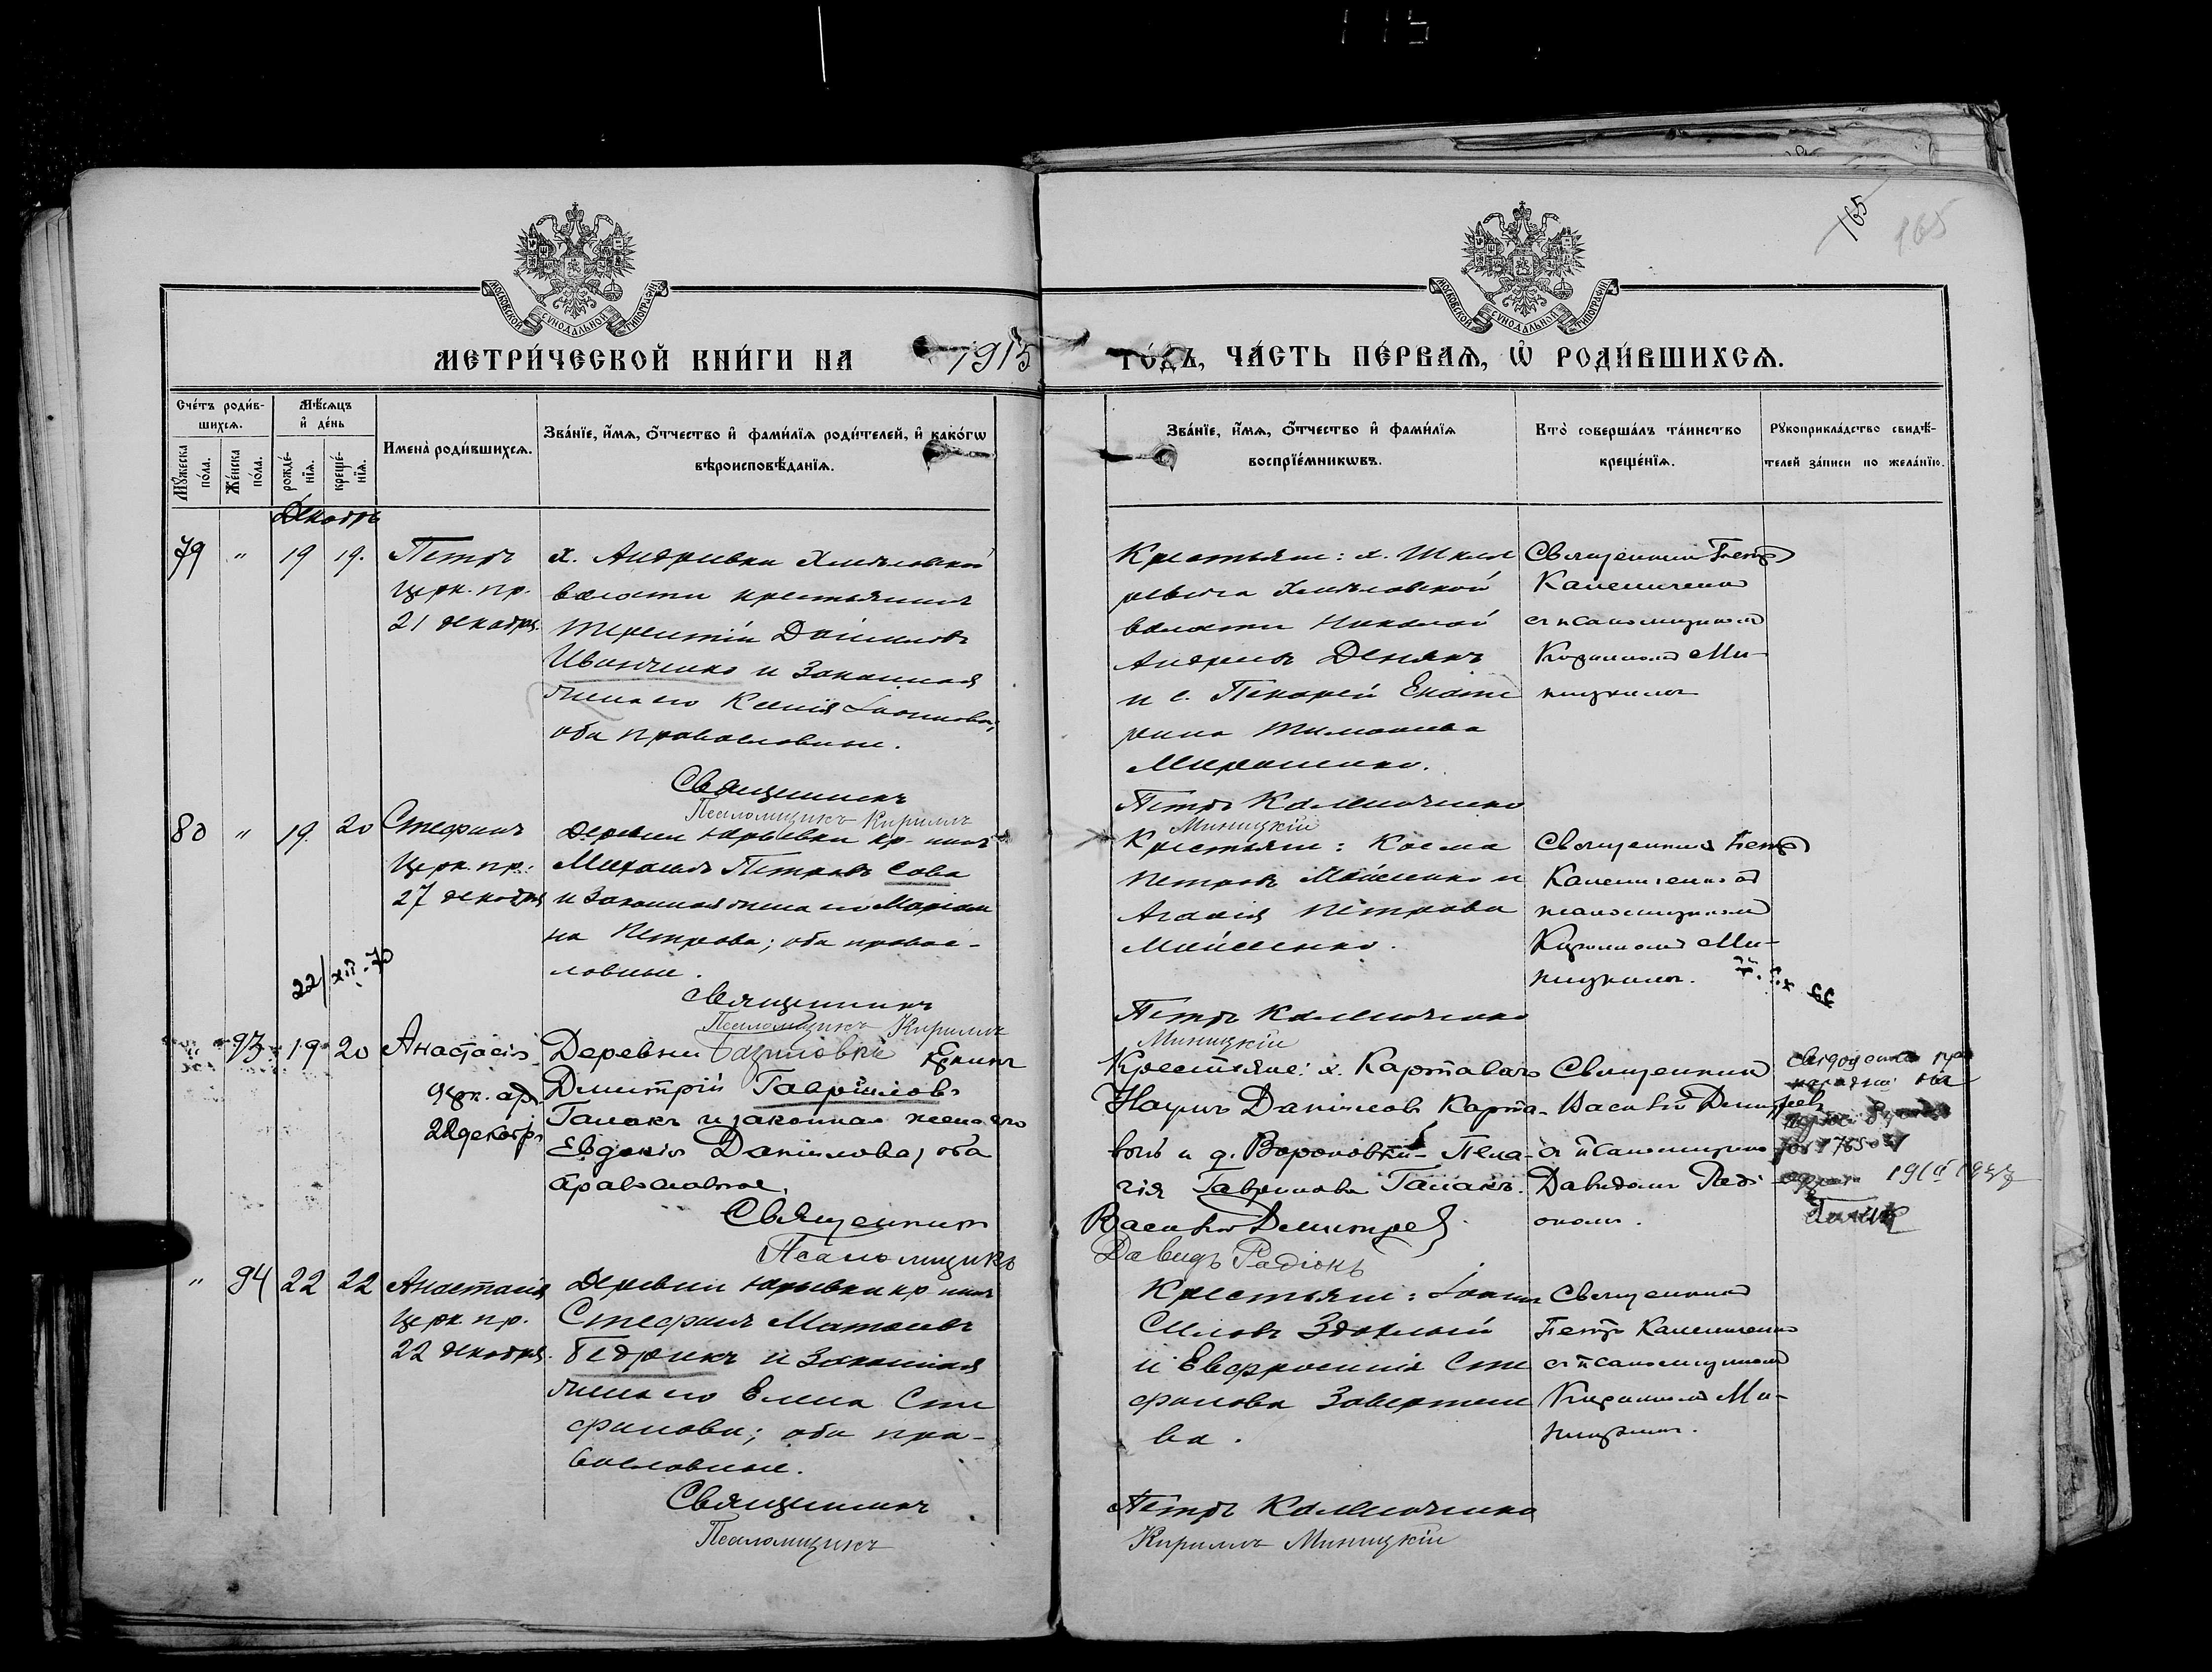 165
165
МОСКОВСКОЙ СѴНОДАЛЬНОЙ ТИПОГРАФІИ
МОСКОВСКОЙ СѴНОДАЛЬНОЙ ТИПОГРАФІИ
МЕТРИ́ЧЕСКОЙ КНИ́ГИ НА 1915 ГО́ДЪ, ЧА́СТЬ ПЕ́РВАѦ, Ѡ҆ РОДИ́ВШИХСѦ.
Сче́тъ роди́в-
шихсѧ.
Мꙋ́жеска по́ла.
Же́нска по́ла.
Мѣ́сѧцъ
и҆ де́нь
рожде́-
нїѧ.
креще́-
нїѧ.
Имена̀ роди́вшихсѧ.
Зва́нїе, и҆́мѧ, ѻ҆́тчество и҆ фами́лїѧ роди́телей, и҆ како́гѡ
вѣроисповѣ́данїѧ.
Зва́нїе, и҆́мѧ, ѻ҆́тчество и҆ фами́лїѧ
воспрїе́мникѡвъ.
Кто̀ соверша́лъ та́инство
креще́нїѧ.
Рꙋкоприкла́дство свидѣ́-
телей за́писи по жела́нїю.
Декабрь
79 " 19 19.
Петръ
церк. пр.
21 декабря.
х. Андріевки Хмѣловской
волости крестьянинъ
Терентій Даніиловъ
Иванченко и законная
жена его Ксенія Іоаннова;
оба православные.
Священникъ
Псаломщикъ Кириллъ
Крестьяне: х.
Хмѣловской
волости Николай
Андреевъ Денякъ
и с. Пекарей Екате
рина Тимоѳеева
Мирошенко.
Петръ Калиниченко
Миницкій
Священникъ Петръ
Калиниченко
съ псаломщикомъ
Кирилломъ Ми-
ницкимъ
80 " 19. 20
Стефанъ
церк. пр.
27 декабря
деревни Юрьевки кр-нинъ
Михаилъ Петровъ Сова
и законная жена его Маріан
на Петрова; оба правос-
лавные.
Священникъ
Псаломщикъ Кириллъ
Крестьяне: Косма
Петровъ Моисеенко и
Агаѳія Петрова
Моисеенко.
Петръ Калиниченко
Миницкій
Священникъ Петръ
Калиниченко съ
псаломщикомъ
Кирилломъ Ми-
ницкимъ.
22/XII-70
93 19 20
Анастасія
церк. пр.
22 декабр.
Деревни кр-нинъ
Дмитрій Гавріиловъ
Галакъ и законная жена его
Евдокія Даніилова, оба
православные.
Священникъ
Псаломщикъ
Крестьяне: х. Картавахъ
Наумъ Даніиловъ Карта-
выхъ и д. Вороновки Пела-
гія Гавріилова Галакъ.
Василій Димитріев
Давидъ Радіонъ
Священник
Василій Димитріев
съ псаломщикомъ
Давидомъ Раді-
ономъ.
" 94 22 22
Анастасія
церк. пр.
22 декабря.
Деревни Юрьевки кр-нинъ
Стефанъ Матѳеевъ
Бедрикъ и законная
жена его Елена Сте
фанова; оба пра-
вославные.
Священникъ
Псаломщикъ
Крестьяне: Іоаннъ
и Евфросинія Сте
фанова
ва.
Петръ Калиниченко
Кириллъ Миницкій
Священникъ
Петръ Калиниченко
съ псаломщикомъ
Кирилломъ Ми-
ницкимъ.